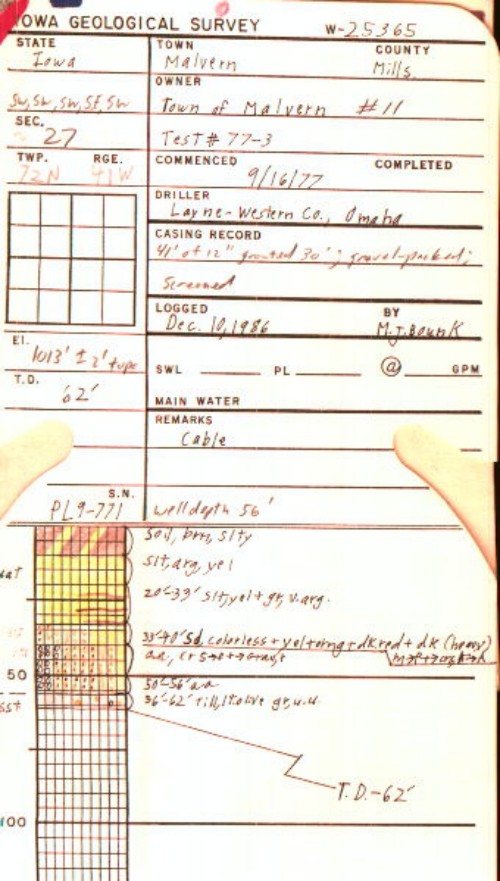 IOWA GEOLOGICAL SURVEY W-25365
STATE
Iowa
TOWN
Malvern
COUNTY
Mills
OWNER
Sw, Sw, Sw, SE, Sw
Town of Malvern #11
SEC.
27
Test # 77-3
TWP. RGE.
72N 41W
COMMENCED COMPLETED
9/16/77
DRILLER
Layne-Western Co., Omaha
CASING RECORD
41' of 12" grouted 30'; gravel-packed;
Screened
LOGGED BY
Dec. 10, 1986 M.J. Bounk
El.
1013' ± 2' topo
SWL PL @ GPM
T.D.
62'
MAIN WATER
REMARKS
Cable
S.N.
PL9-771 well depth 56'
Soil, brn, slty
slt, arg, yel
20'-33' slt, yel + gr, v. arg.
33'-40' Sd, colorless + yel + orng + dk red + dk (heavy)
aa,
50 50'-56' aa
56'-62' till, lt olive gr, u.u.
T.D.-62'
100